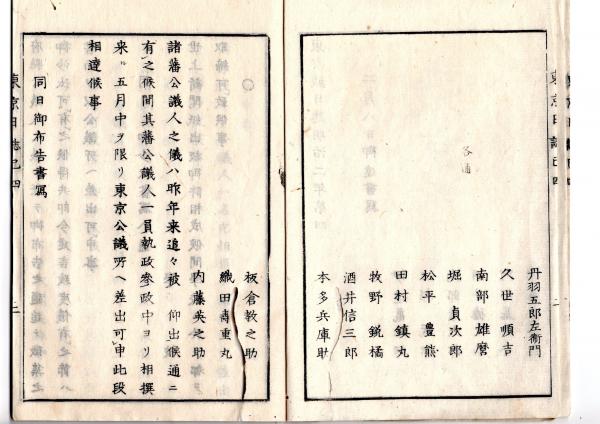 東京日誌 己四
丹羽五郎左衛門
久世順吉
南部雄麿
各通
堀貞次郎
松平豊熊
田村鎮丸
牧野鋭橘
酒井信三郎
本多兵庫助
板倉教之助
織田壽重丸
内藤英之助
諸藩公議人之儀ハ昨年来追々被 仰出候通ニ
有之候間其藩公議人一員執政參政中ヨリ相撰
来ル五月中ヲ限リ東京公議所ヘ差出可申此段
相達候事
同日御布告書寫
東京日誌 己四
二